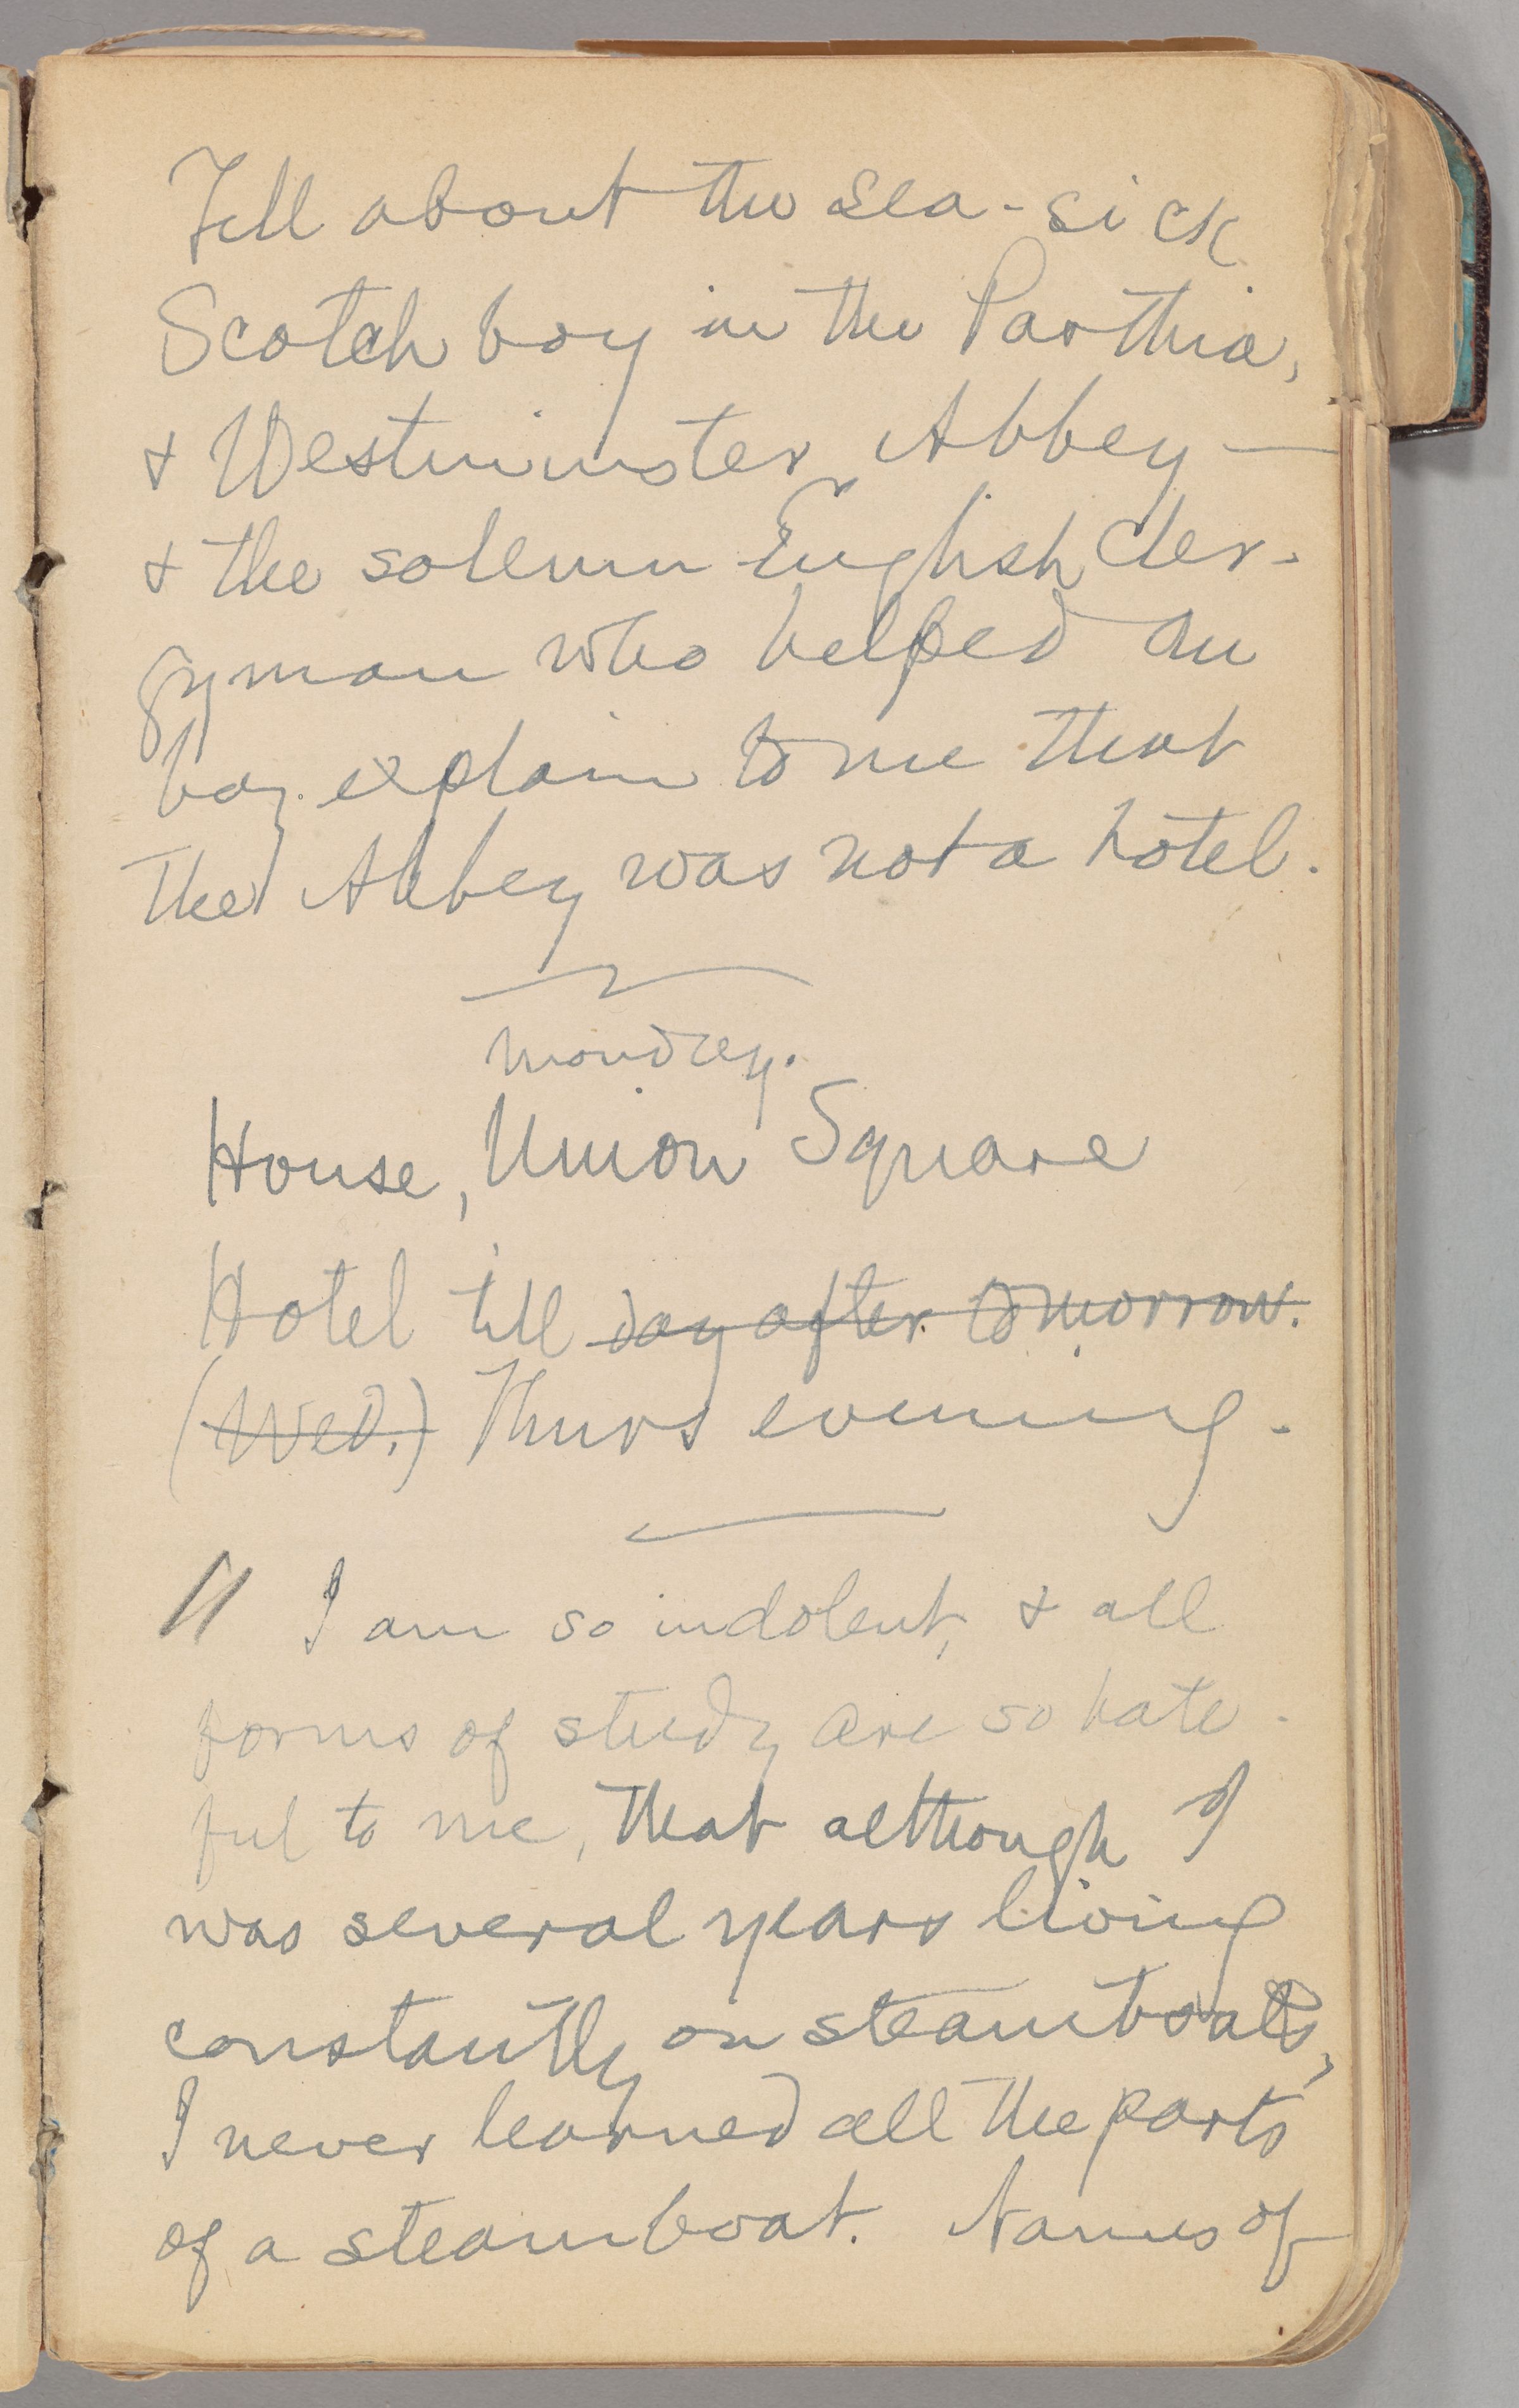 Tell about the sea-sick
Scotch boy in the Parthia,
& Westminster Abbey —
& the solemn English cler-
gyman who helped au
boy explain to me that
the Abbey was not a hotel.
Monday.
House, Union Square
Hotel till day after tomorrow.
(Wed.) Thurs evening.
I am so indolent, & all
forms of study are so hate-
ful to me, that although I
was several years living
constantly on steamboats,
I never learned all the parts
of a steamboat. Names of